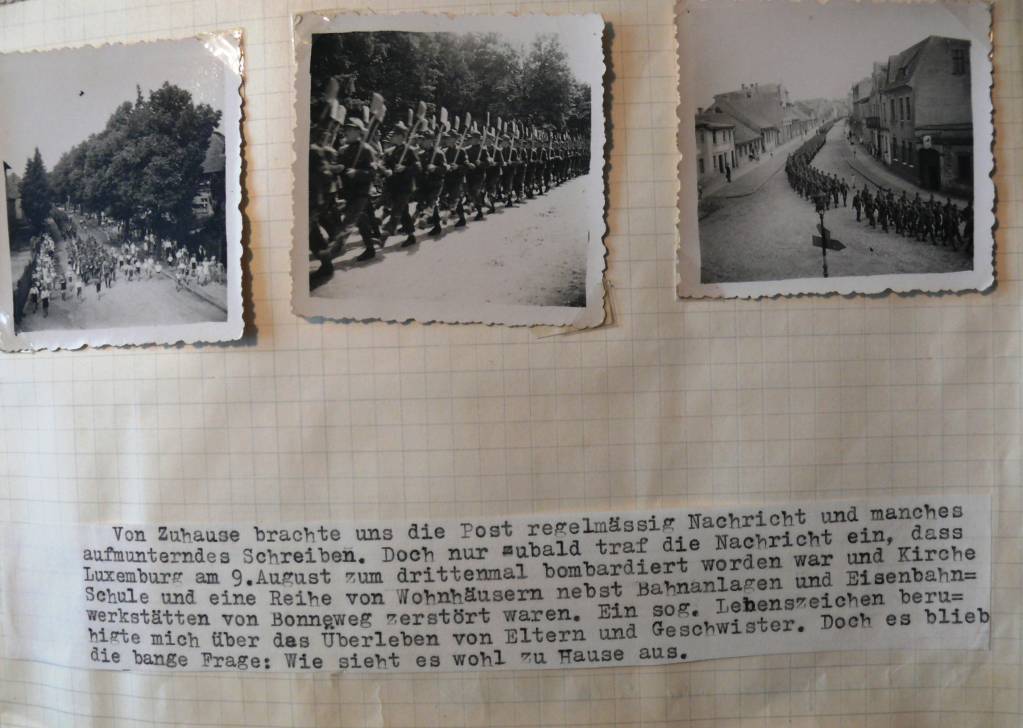 Von Zuhause brachte uns die Post regelmässig Nachricht und manches
aufmunterndes Schreiben. Doch nur zubald traf die Nachricht ein, dass
Luxemburg am 9.August zum drittenmal bombardiert worden war und Kirche
Schule und eine Reihe von Wohnhäusern nebst Bahnanlagen und Eisenbahn=
werkstätten von Bonneweg zerstört waren. Ein sog. Lebenszeichen beru=
higte mich über das Überleben von Eltern und Geschwister. Doch es blieb
die bange Frage: Wie sieht es wohl zu Hause aus.